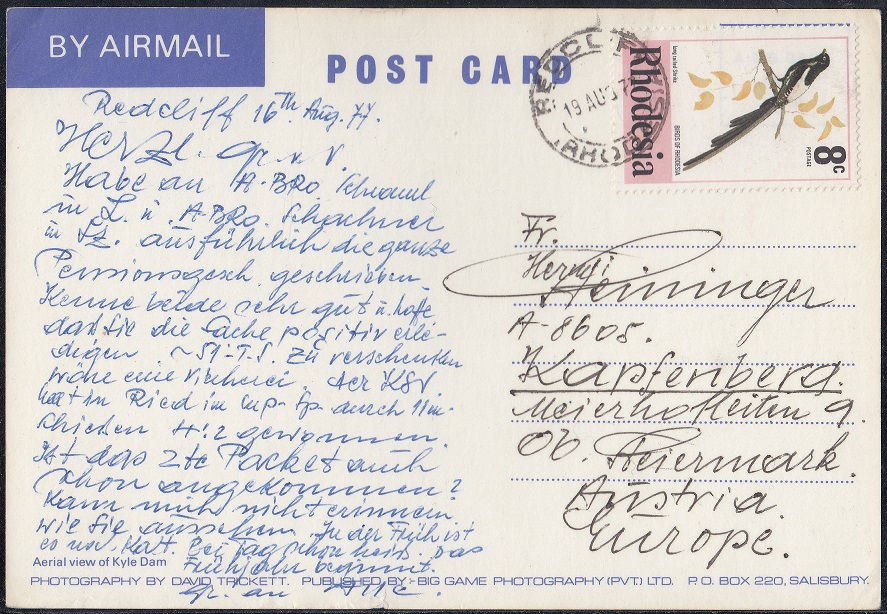 BY AIRMAIL
POST CARD
REDCLIFF
19 AUG 77
RHODESIA
Rhodesia
BIRDS OF RHODESIA
POSTAGE
8c
Redcliff 16th Aug. 77.
Herzl. Gr. v. V
Habe an A-BRO.
in L. u. A-BRO. Schachner
in Lz. ausführlich die ganze
Pensionsgesch. geschrieben.
Kenne beide sehr gut u. hoffe
daß sie die Sache positiv erle-
digen. ~ 51-T.S. zu verschenken
wäre eine. Der KSV
hat in Ried im Cup-Sp. durch 11 m-
Schießen 4:2 gewonnen.
Ist das 2te Packet auch
schon angekommen?
Kann mich nicht erinnern
wie Sie aussehen. In der Früh ist
es noch kalt. Bei Tag schon heiß. Das
Frühjahr beginnt.
Gr. an Alle.
Fr.
Hermi
Deininger
A-8605.
Kapfenberg.
Meierhofleiten 9.
Ob. Steiermark.
Austria.
Europe.
Aerial view of Kyle Dam
PHOTOGRAPHY BY DAVID TRICKETT. PUBLISHED BY:- BIG GAME PHOTOGRAPHY (PVT.) LTD. P.O. BOX 220, SALISBURY.